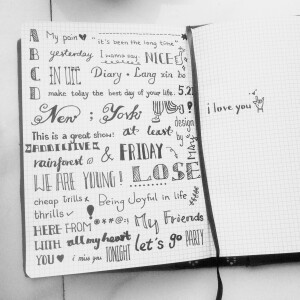 A My pain ♥ "it's been the long time"
B yesterday I wanna say NICE
C IN LIFE Diary · Lang xin bo
D make today the best day of your life. 5.21
New ; York
This is a great show! at least
design by
ADDICTIVE MAY
rainforest & FRIDAY
WE ARE YOUNG! LOSE
cheap trills
thrills ✓ ! Being Joyful in life
HERE FROM My Friends
WITH all my heart let's go PARTY
YOU ♥ i miss you TONIGHT
i love you